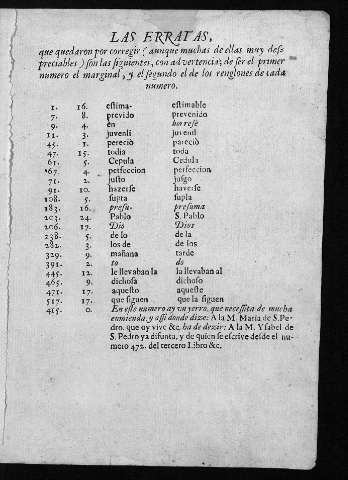 LAS ERRATAS,
que quedaron por corregir (aunque muchas de ellas muy des
preciables) son las siguientes, con advertencia, de ser el primer
numero el marginal, y el segundo el de los renglones de cada
numero.
1. 16. estima- estimable
7. 8. prevido prevenido
9. 4. en
11. 3. juvenli juvenil
45. 1. pereciò pareciò
47. 15. todia toda
61. 5. Cepula Cedula
67. 4. petfeccion perfeccion
71. 2. justo jusgo
91. 10. hazerse haverse
108. 5. supta supla
183. 16. presu- presuma
203. 24. Pablo S. Pablo
206. 17. Diò Dios
238. 5. de lo de la
282. 3. los de de los
329. 9. mañana tarde
391. 2. to do
445. 12. le llevaban la la llevaban al
465. 9. dichosa dichosa
471. 17. aquesto aqueste
517. 17. que siguen que la siguen
415. 0. En este numero ay un yerro, que necessita de mucha
enmienda, y assi donde dize: A la M. Maria de S. Pe-
dro. que oy vive &c. ha de dezir: A la M. Ysabel de
S. Pedro ya difunta, y de quien se escrive desde el nu-
mero 472. del tercero Libro &c.